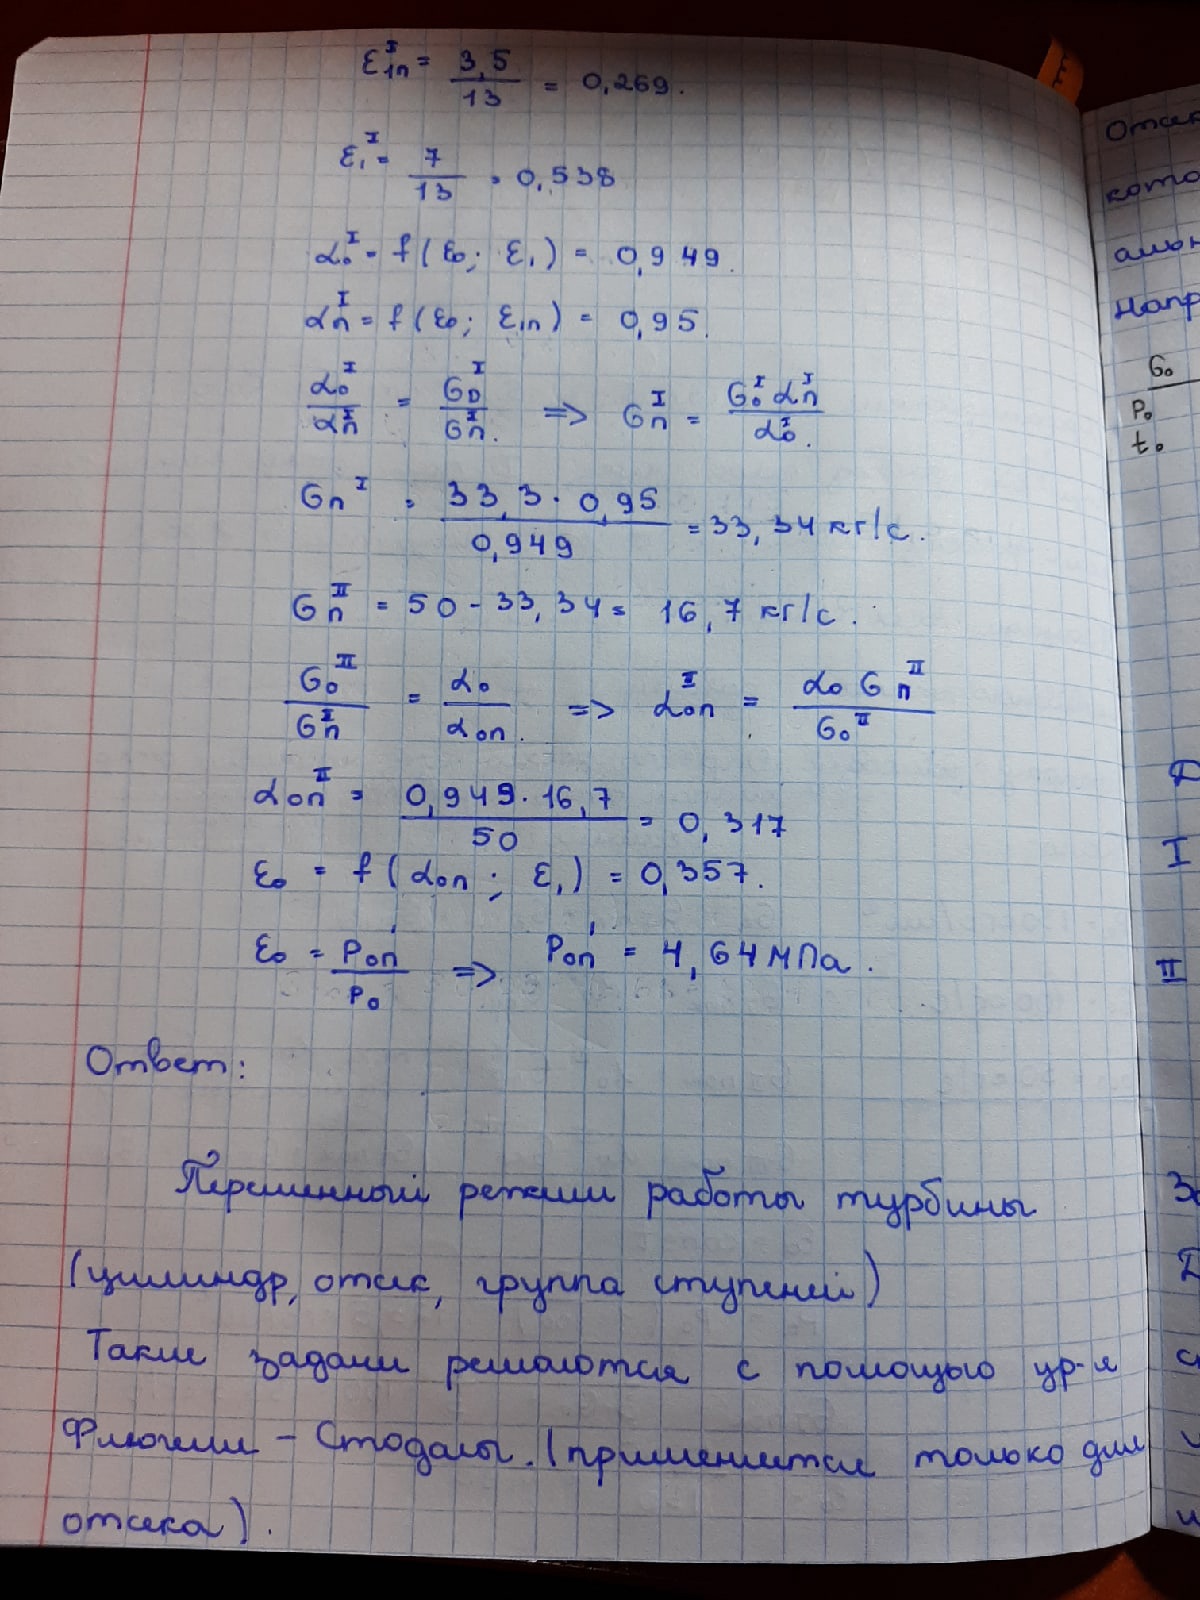 ε₁ₙᴵ = 3,5/13 = 0,269.
ε₁ᴵ = 7/13 = 0,538
α₀ᴵ = f(ε₀; ε₁) = 0,949.
αₙᴵ = f(ε₀; ε₁ₙ) = 0,95.
α₀ᴵ/αₙᴵ = G₀ᴵ/Gₙᴵ. => Gₙᴵ = G₀ᴵ αₙᴵ/α₀ᴵ.
Gₙᴵ = 33,3 · 0,95/0,949 = 33,34 кг/с.
Gₙᴵᴵ = 50 - 33,34 = 16,7 кг/с.
G₀ᴵᴵ/Gₙᴵᴵ = α₀/α₀ₙ. => α₀ₙᴵᴵ = α₀ Gₙᴵᴵ/G₀ᴵᴵ
α₀ₙᴵᴵ = 0,949 · 16,7/50 = 0,317
ε₀ = f(α₀ₙ; ε₁) = 0,357.
ε₀ = P₀ₙ'/P₀ => P₀ₙ' = 4,64 МПа.
Ответ:
Переменный режим работы турбины
(цилиндр, отсек, группа ступеней)
Такие задачи решаются с помощью ур-я
Флюгеля - Стодолы. (применяется только для
отсека).
G₀
P₀
t₀
I
II